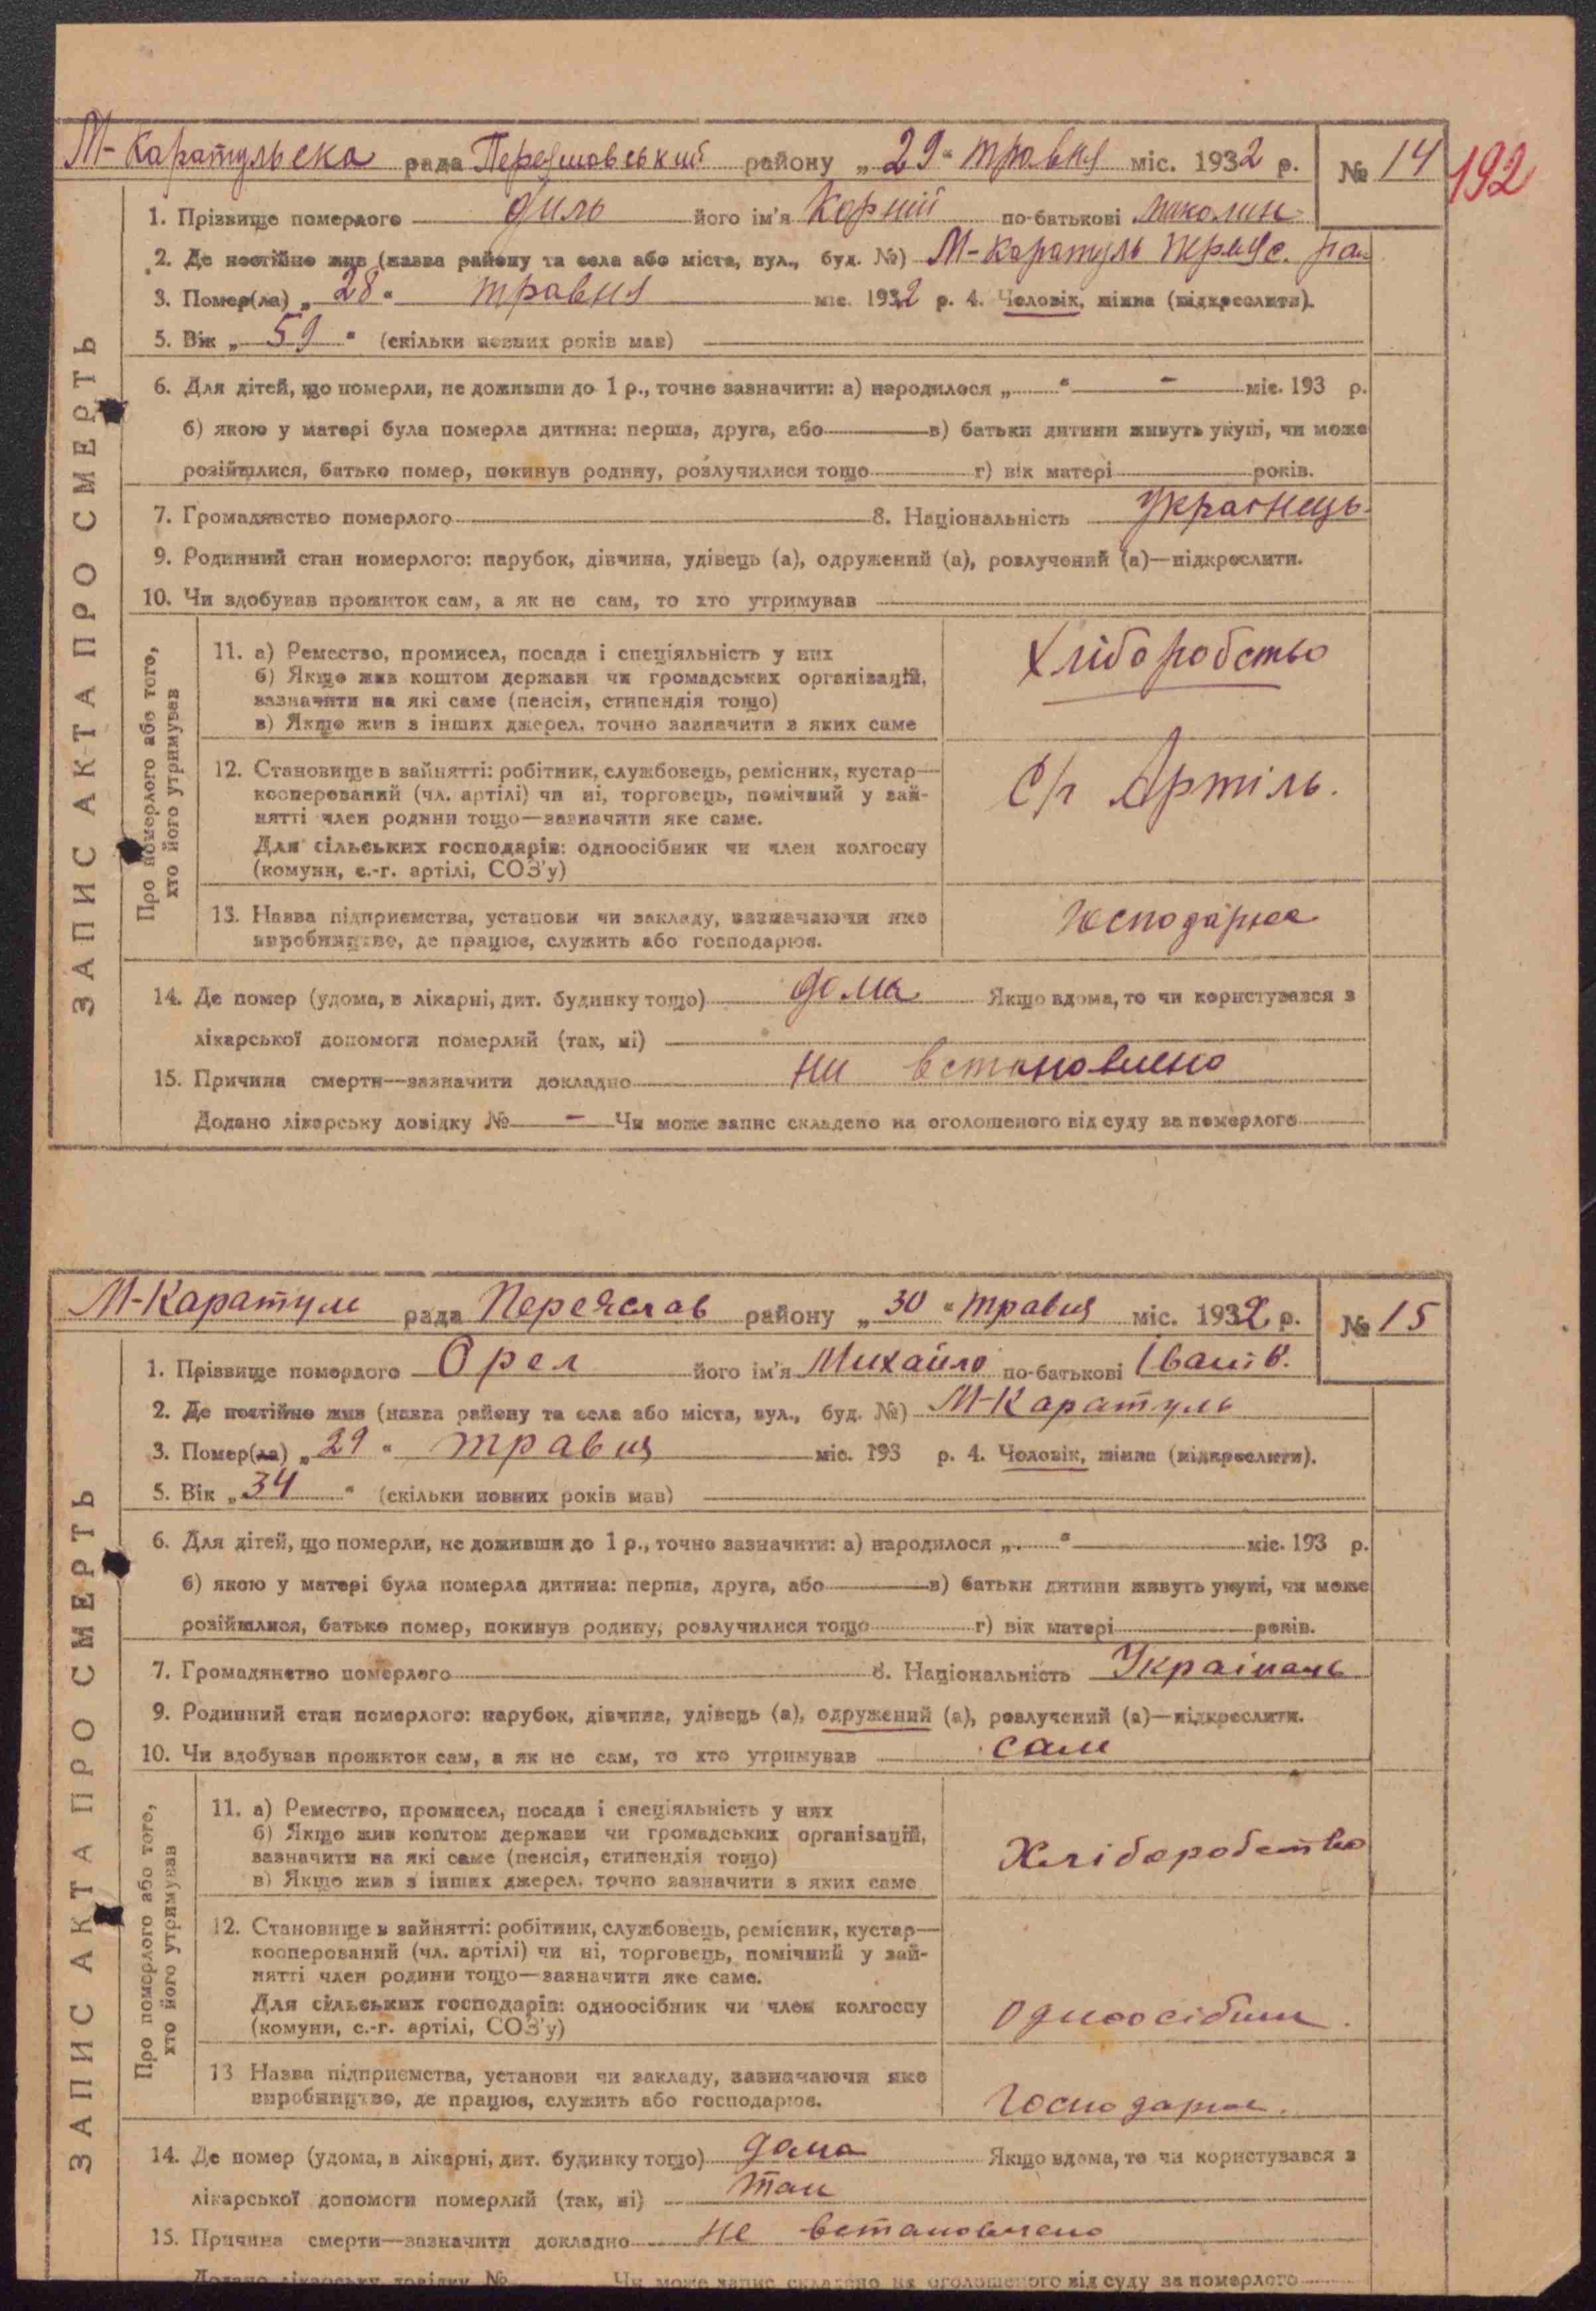 М-Каратульска рада Переяславський району „29“ травня міс. 1932 р. № 14
192
1. Прізвище померлого Диль його ім'я Корній по-батькові Миколин
2. Де постійно жив (назва району та села або міста, вул., буд. №) М-Каратуль Переяс. ра
3. Помер(ла) „28“ травня міс. 1932 р. 4. Чоловік, жінка (підкреслити).
5. Вік „59“ (скільки повних років мав)
6. Для дітей, що померли, не доживши до 1 р., точно зазначити: а) народилося „ “ - міс. 193 р.
б) якою у матері була померла дитина: перша, друга, або в) батьки дитини живуть укупі, чи може
розійшлися, батько помер, покинув родину, розлучилися тощо г) вік матері років.
7. Громадянство померлого 8. Національність Українець
9. Родинний стан померлого: парубок, дівчина, удівець (а), одружений (а), розлучений (а)—підкреслити.
10. Чи здобував прожиток сам, а як не сам, то хто утримував
ЗАПИС АКТА ПРО СМЕРТЬ
Про померлого або того,
хто його утримував
11. а) Ремество, промисел, посада і спеціяльність у них
б) Якщо жив коштом держави чи громадських організацій,
зазначити на які саме (пенсія, стипендія тощо)
в) Якщо жив з інших джерел, точно зазначити з яких саме
Хліборобство
12. Становище в зайнятті: робітник, службовець, ремісник, кустар—
кооперований (чл. артілі) чи ні, торговець, помічний у зай-
нятті член родини тощо—зазначити яке саме.
Для сільських господарів: одноосібник чи член колгоспу
(комуни, с.-г. артілі, СОЗ'у)
С/г Артіль.
13. Назва підприємства, установи чи закладу, зазначаючи яке
виробництво, де працює, служить або господарює.
14. Де помер (удома, в лікарні, дит. будинку тощо) дома Якщо вдома, то чи користувався з
лікарської допомоги померлий (так, ні)
15. Причина смерти—зазначити докладно ни встановлено
Додано лікарську довідку № - Чи може запис складено на оголошеного від суду за померлого
М-Каратули рада Переяслав району „30“ травня міс. 1932 р. № 15
1. Прізвище померлого Орел його ім'я Михайло по-батькові Іванів.
2. Де постійно жив (назва району та села або міста, вул., буд. №) М-Каратуль
3. Помер(ла) „29“ травня міс. 193 р. 4. Чоловік, жінка (підкреслити).
5. Вік „34“ (скільки повних років мав)
6. Для дітей, що померли, не доживши до 1 р., точно зазначити: а) народилося „ “ міс. 193 р.
б) якою у матері була померла дитина: перша, друга, або в) батьки дитини живуть укупі, чи може
розійшлися, батько помер, покинув родину, розлучилися тощо г) вік матері років.
7. Громадянство померлого 8. Національність Українець
9. Родинний стан померлого: парубок, дівчина, удівець (а), одружений (а), розлучений (а)—підкреслити.
10. Чи здобував прожиток сам, а як не сам, то хто утримував сам
ЗАПИС АКТА ПРО СМЕРТЬ
Про померлого або того,
хто його утримував
11. а) Ремество, промисел, посада і спеціяльність у них
б) Якщо жив коштом держави чи громадських організацій,
зазначити на які саме (пенсія, стипендія тощо)
в) Якщо жив з інших джерел, точно зазначити з яких саме
Хліборобство
12. Становище в зайнятті: робітник, службовець, ремісник, кустар—
кооперований (чл. артілі) чи ні, торговець, помічний у зай-
нятті член родини тощо—зазначити яке саме.
Для сільських господарів: одноосібник чи член колгоспу
(комуни, с.-г. артілі, СОЗ'у)
13 Назва підприємства, установи чи закладу, зазначаючи яке
виробництво, де працює, служить або господарює.
14. Де помер (удома, в лікарні, дит. будинку тощо) дома Якщо вдома, то чи користувався з
лікарської допомоги померлий (так, ні) так
15. Причина смерти—зазначити докладно не встановлено
Додано лікарську довідку № Чи може запис складено на оголошеного від суду за померлого